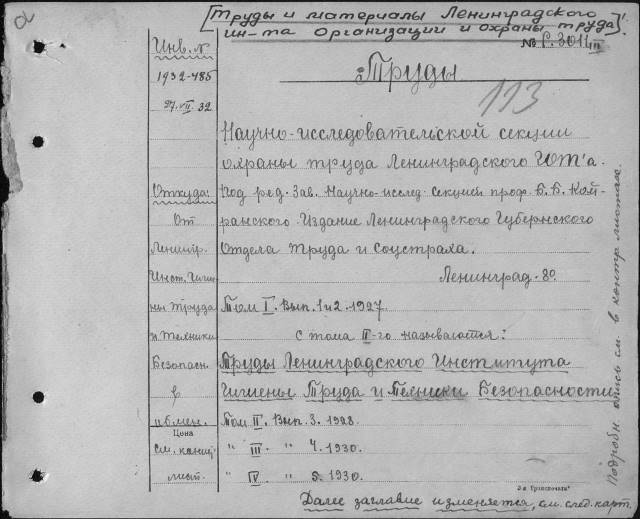 [Труды и материалы Ленинградского
ин-та Организации и охраны труда].
№ P.3011 III
Инв. №
1932-485
27.VII.32
Труды
113
Научно-исследовательской секции
охраны труда Ленинградского ГОТ'а.
Откуда:
Под ред. Зав. Научно-исслед. секцией проф. Б. Б. Кой-
От
ранского. Издание Ленинградского Губернского
Ленингр.
Отдела Труда и Соцстраха.
Инст. Гиги-
Ленинград. 8º.
ены труда
Том I. Вып. 1 и 2. 1927
и техники
С тома II-го называется:
Безопасн.
Труды Ленинградского Института
в
Гигиены Труда и Техники Безопасности
обмен.
Том II. Вып. 3. 1928.
Цена
см. канц.
" III. " 4. 1930.
лист.
" IV " 5. 1930.
Далее заглавие изменяется, см. след. карт.
Подробн. опись см. в контр. листах.